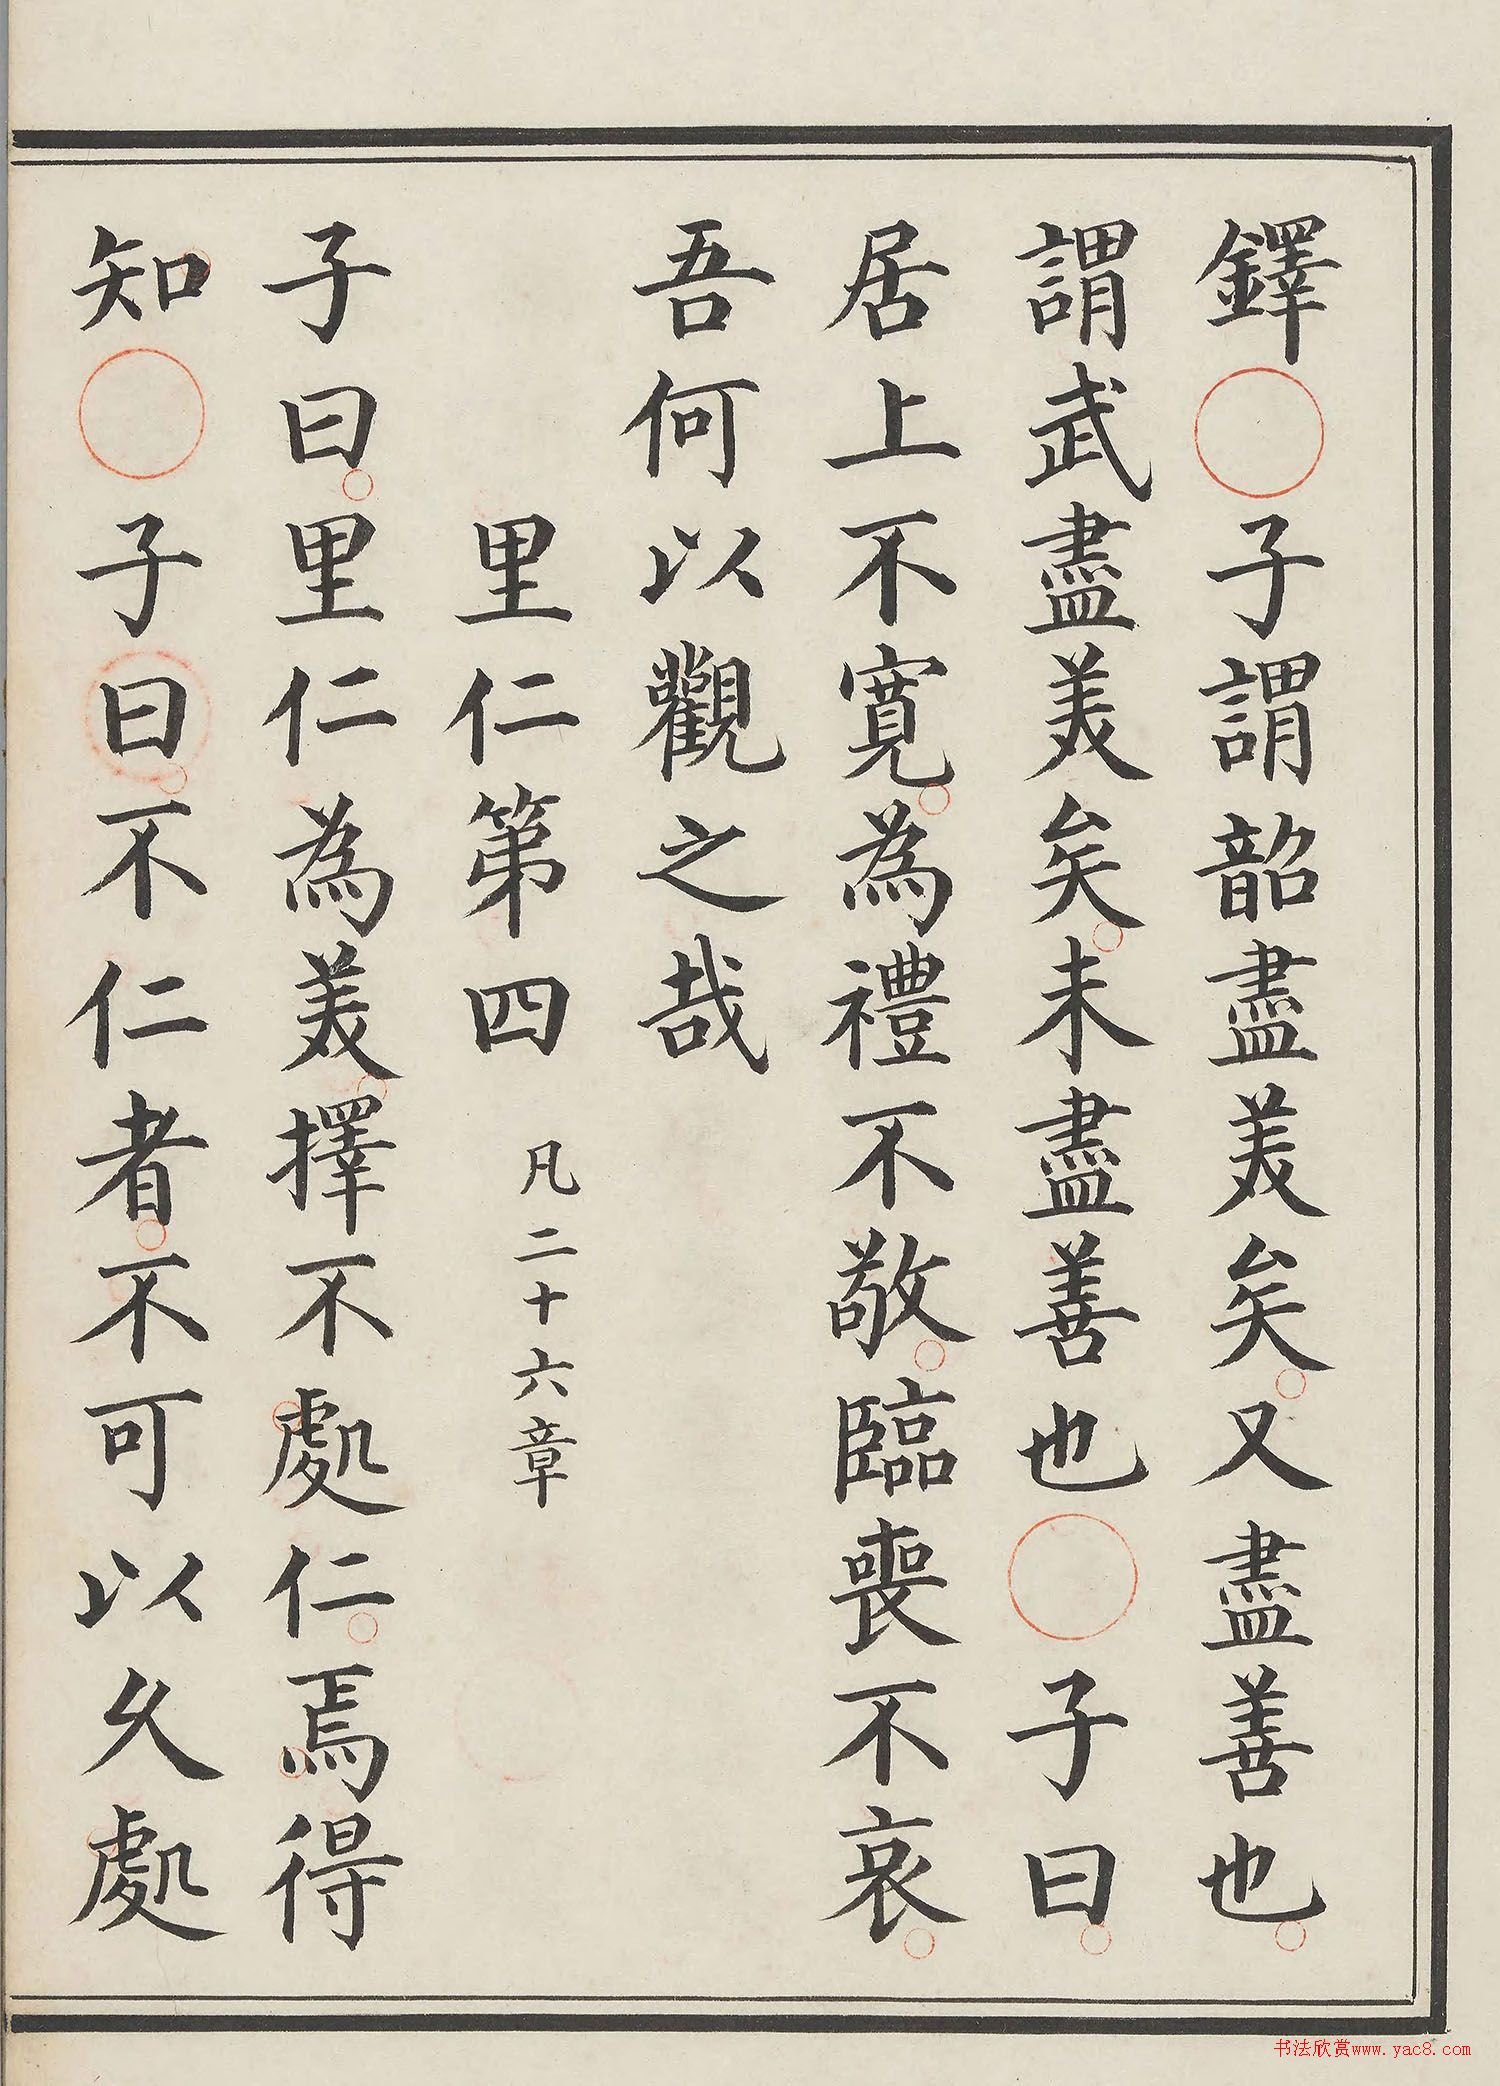 鐸○子謂韶盡美矣又盡善也
謂武盡美矣未盡善也○子曰
居上不寬為禮不敬臨喪不哀
吾何以觀之哉
里仁第四 凡二十六章
子曰里仁為美擇不處仁焉得
知○子曰不仁者不可以久處
书法欣赏www.yac8.com